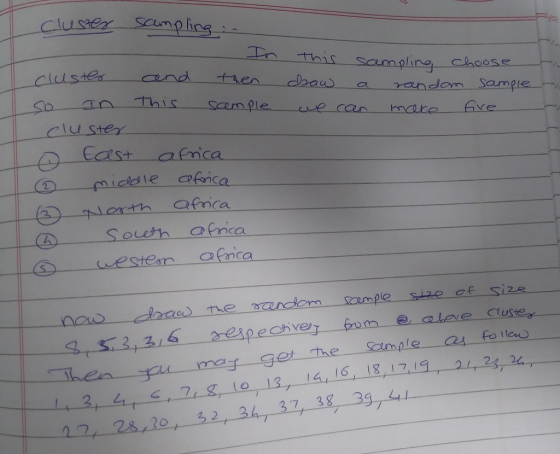 Cluster sampling :-
In this sampling choose
cluster and then draw a random sample
so in this sample we can make five
cluster
① East africa
② middle africa
③ North africa
④ South africa
⑤ western africa
now draw the random sample of size
8, 5, 3, 3, 6 respectively from above cluster
Then you may get the sample as follow
1, 3, 4, 6, 7, 8, 10, 13, 14, 16, 18, 17, 19, 21, 23, 26,
27, 28, 30, 32, 34, 37, 38, 39, 41